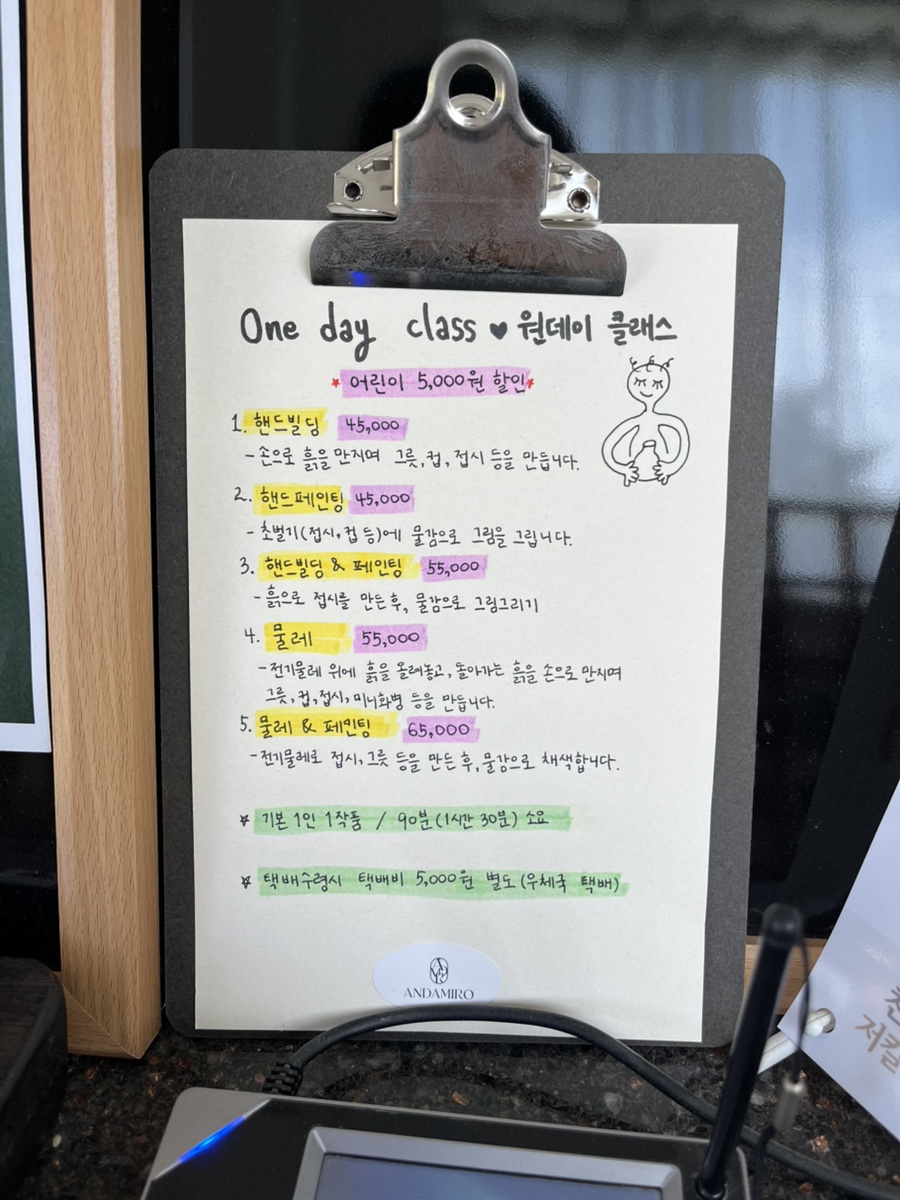 One day class ♥ 원데이 클래스
* 어린이 5,000원 할인 *
1. 핸드빌딩 45,000
- 손으로 흙을 만지며 그릇, 컵, 접시 등을 만듭니다.
2. 핸드페인팅 45,000
- 초벌기(접시, 컵 등)에 물감으로 그림을 그립니다.
3. 핸드빌딩 & 페인팅 55,000
- 흙으로 접시를 만든 후, 물감으로 그림그리기
4. 물레 55,000
- 전기물레 위에 흙을 올려놓고, 돌아가는 흙을 손으로 만지며
그릇, 컵, 접시, 미니화병 등을 만듭니다.
5. 물레 & 페인팅 65,000
- 전기물레로 접시, 그릇 등을 만든 후, 물감으로 채색합니다.
☆ 기본 1인 1작품 / 90분(1시간 30분) 소요
☆ 택배수령시 택배비 5,000원 별도(우체국 택배)
ANDAMIRO